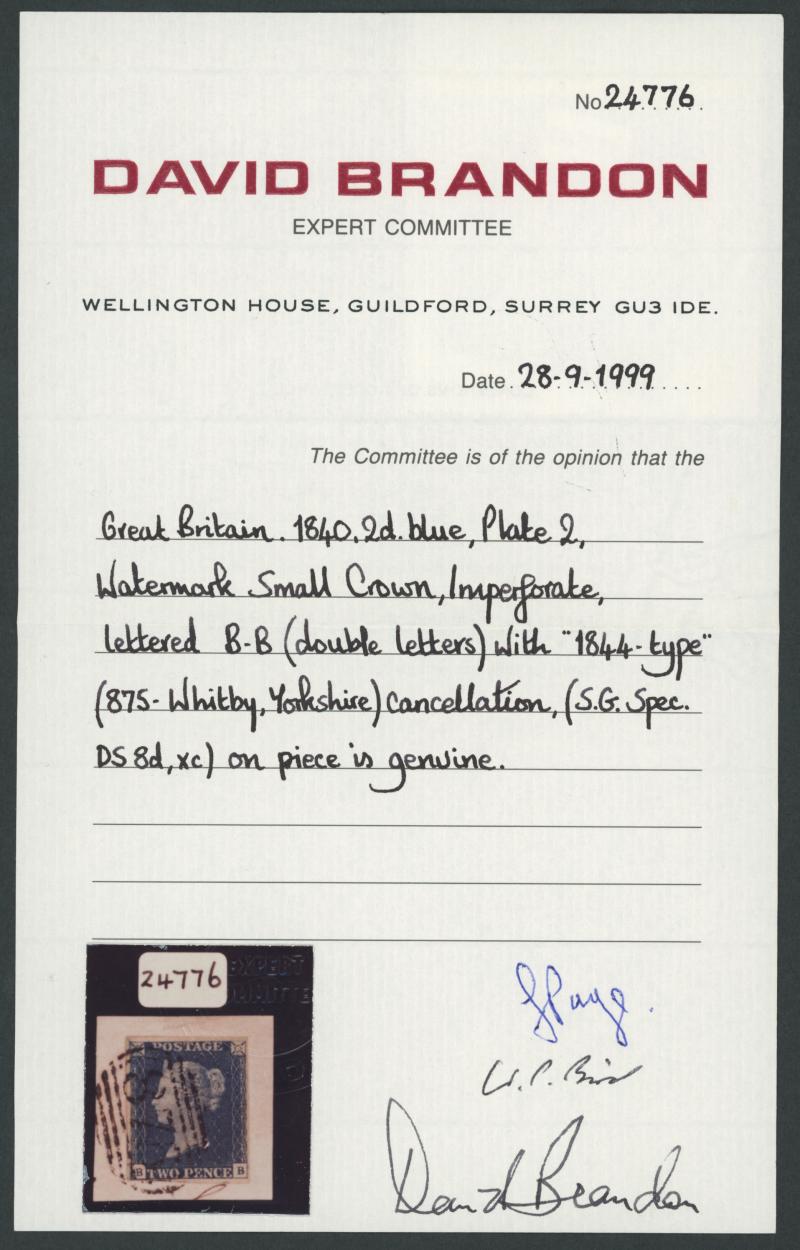 No 24776
DAVID BRANDON
EXPERT COMMITTEE
WELLINGTON HOUSE, GUILDFORD, SURREY GU3 1DE.
Date. 28-9-1999
The Committee is of the opinion that the
Great Britain. 1840. 2d. blue, Plate 2,
Watermark Small Crown, Imperforate,
lettered B-B (double letters) with "1844-type"
(875-Whitby, Yorkshire) cancellation, (S.G. Spec.
DS 8d, xc) on piece is genuine.
24776
EXPERT
POSTAGE
875
B TWO PENCE B
David Brandon